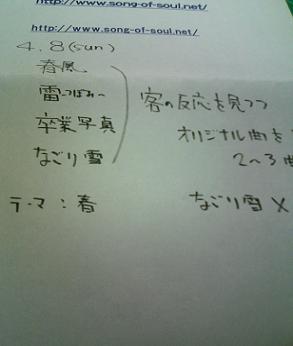 http://www.song-of-soul.net/
http://www.song-of-soul.net/
4.8(sun)
春風
雷
卒業写真
なごり雪
客の反応を見つつ
オリジナル曲を
2〜3曲
テーマ：春
なごり雪 ×